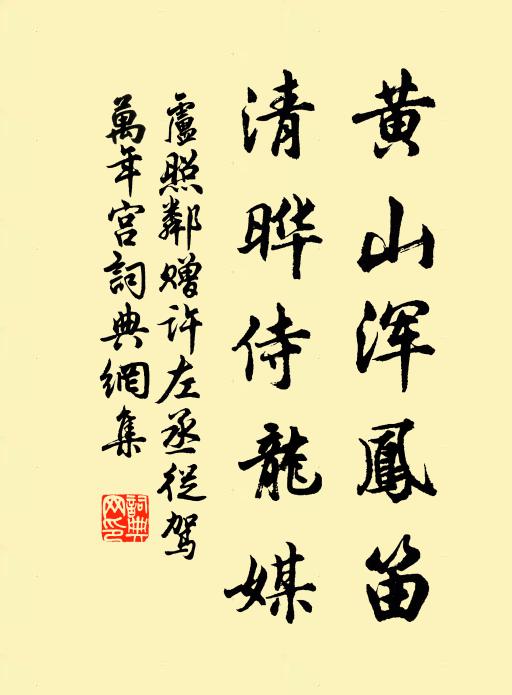 黄山浑鳳笛
清晔侍龍媒
盧照鄰贈许左丞從駕
萬年宫詞典網集
詞典
网印